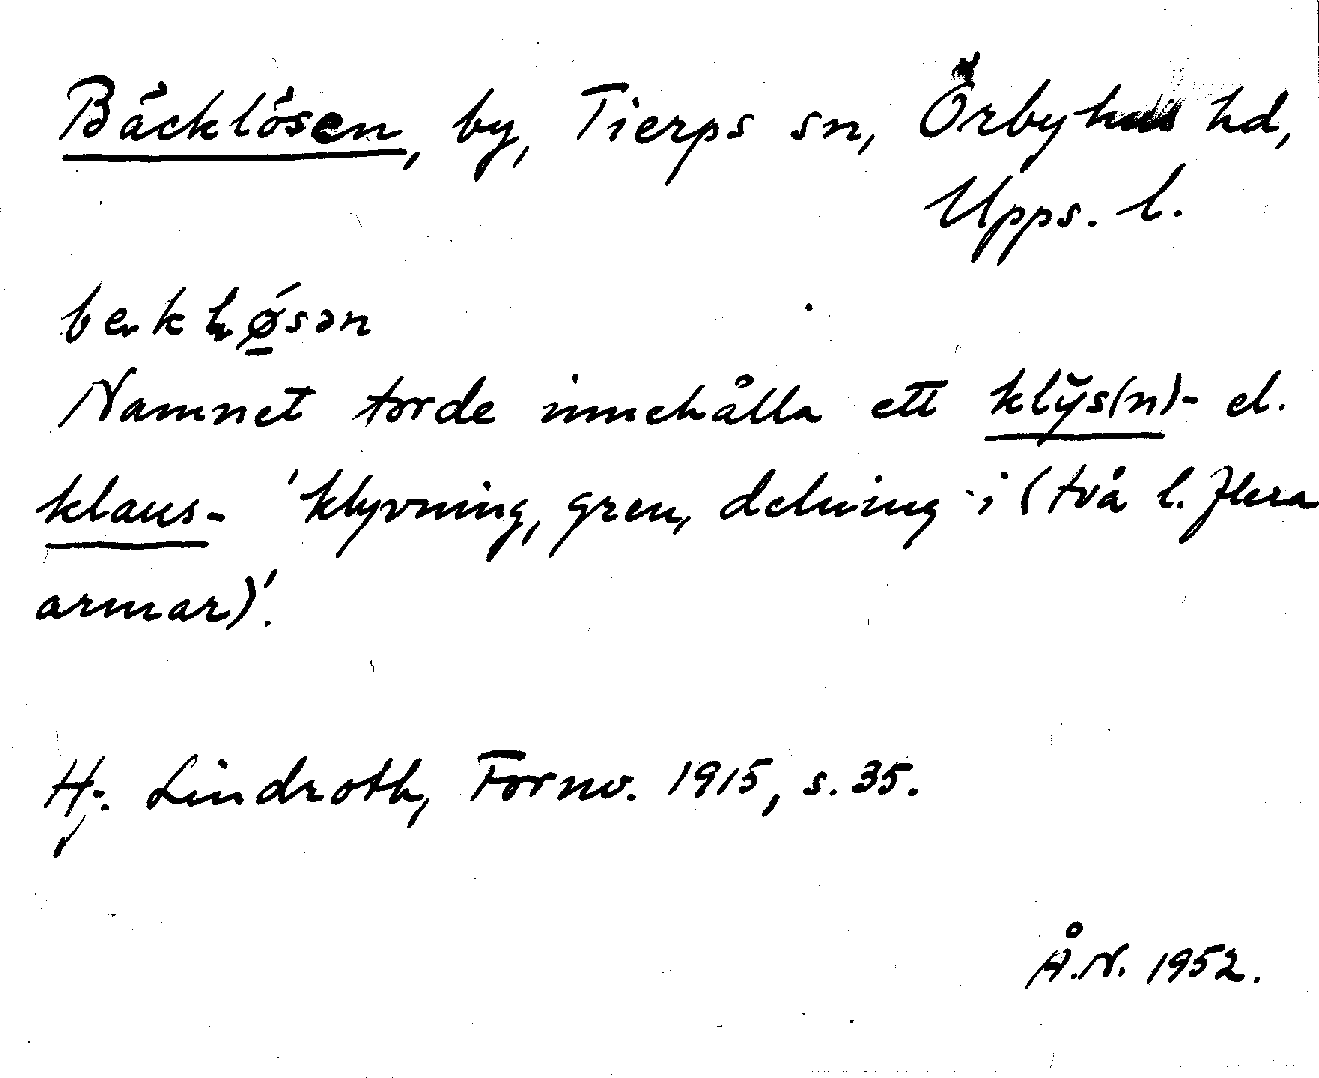 Bäcklösen, by, Tierps sn, Örbyhus hd,
Upps. l.
beklǿ̱sən
Namnet torde innehålla ett klȳ̆s(n)- el.
klaus- 'klyvning, gren, delning i (två l. flera
armar)'.
Hj. Lindroth, Fornv. 1915, s. 35.
Å.N. 1952.